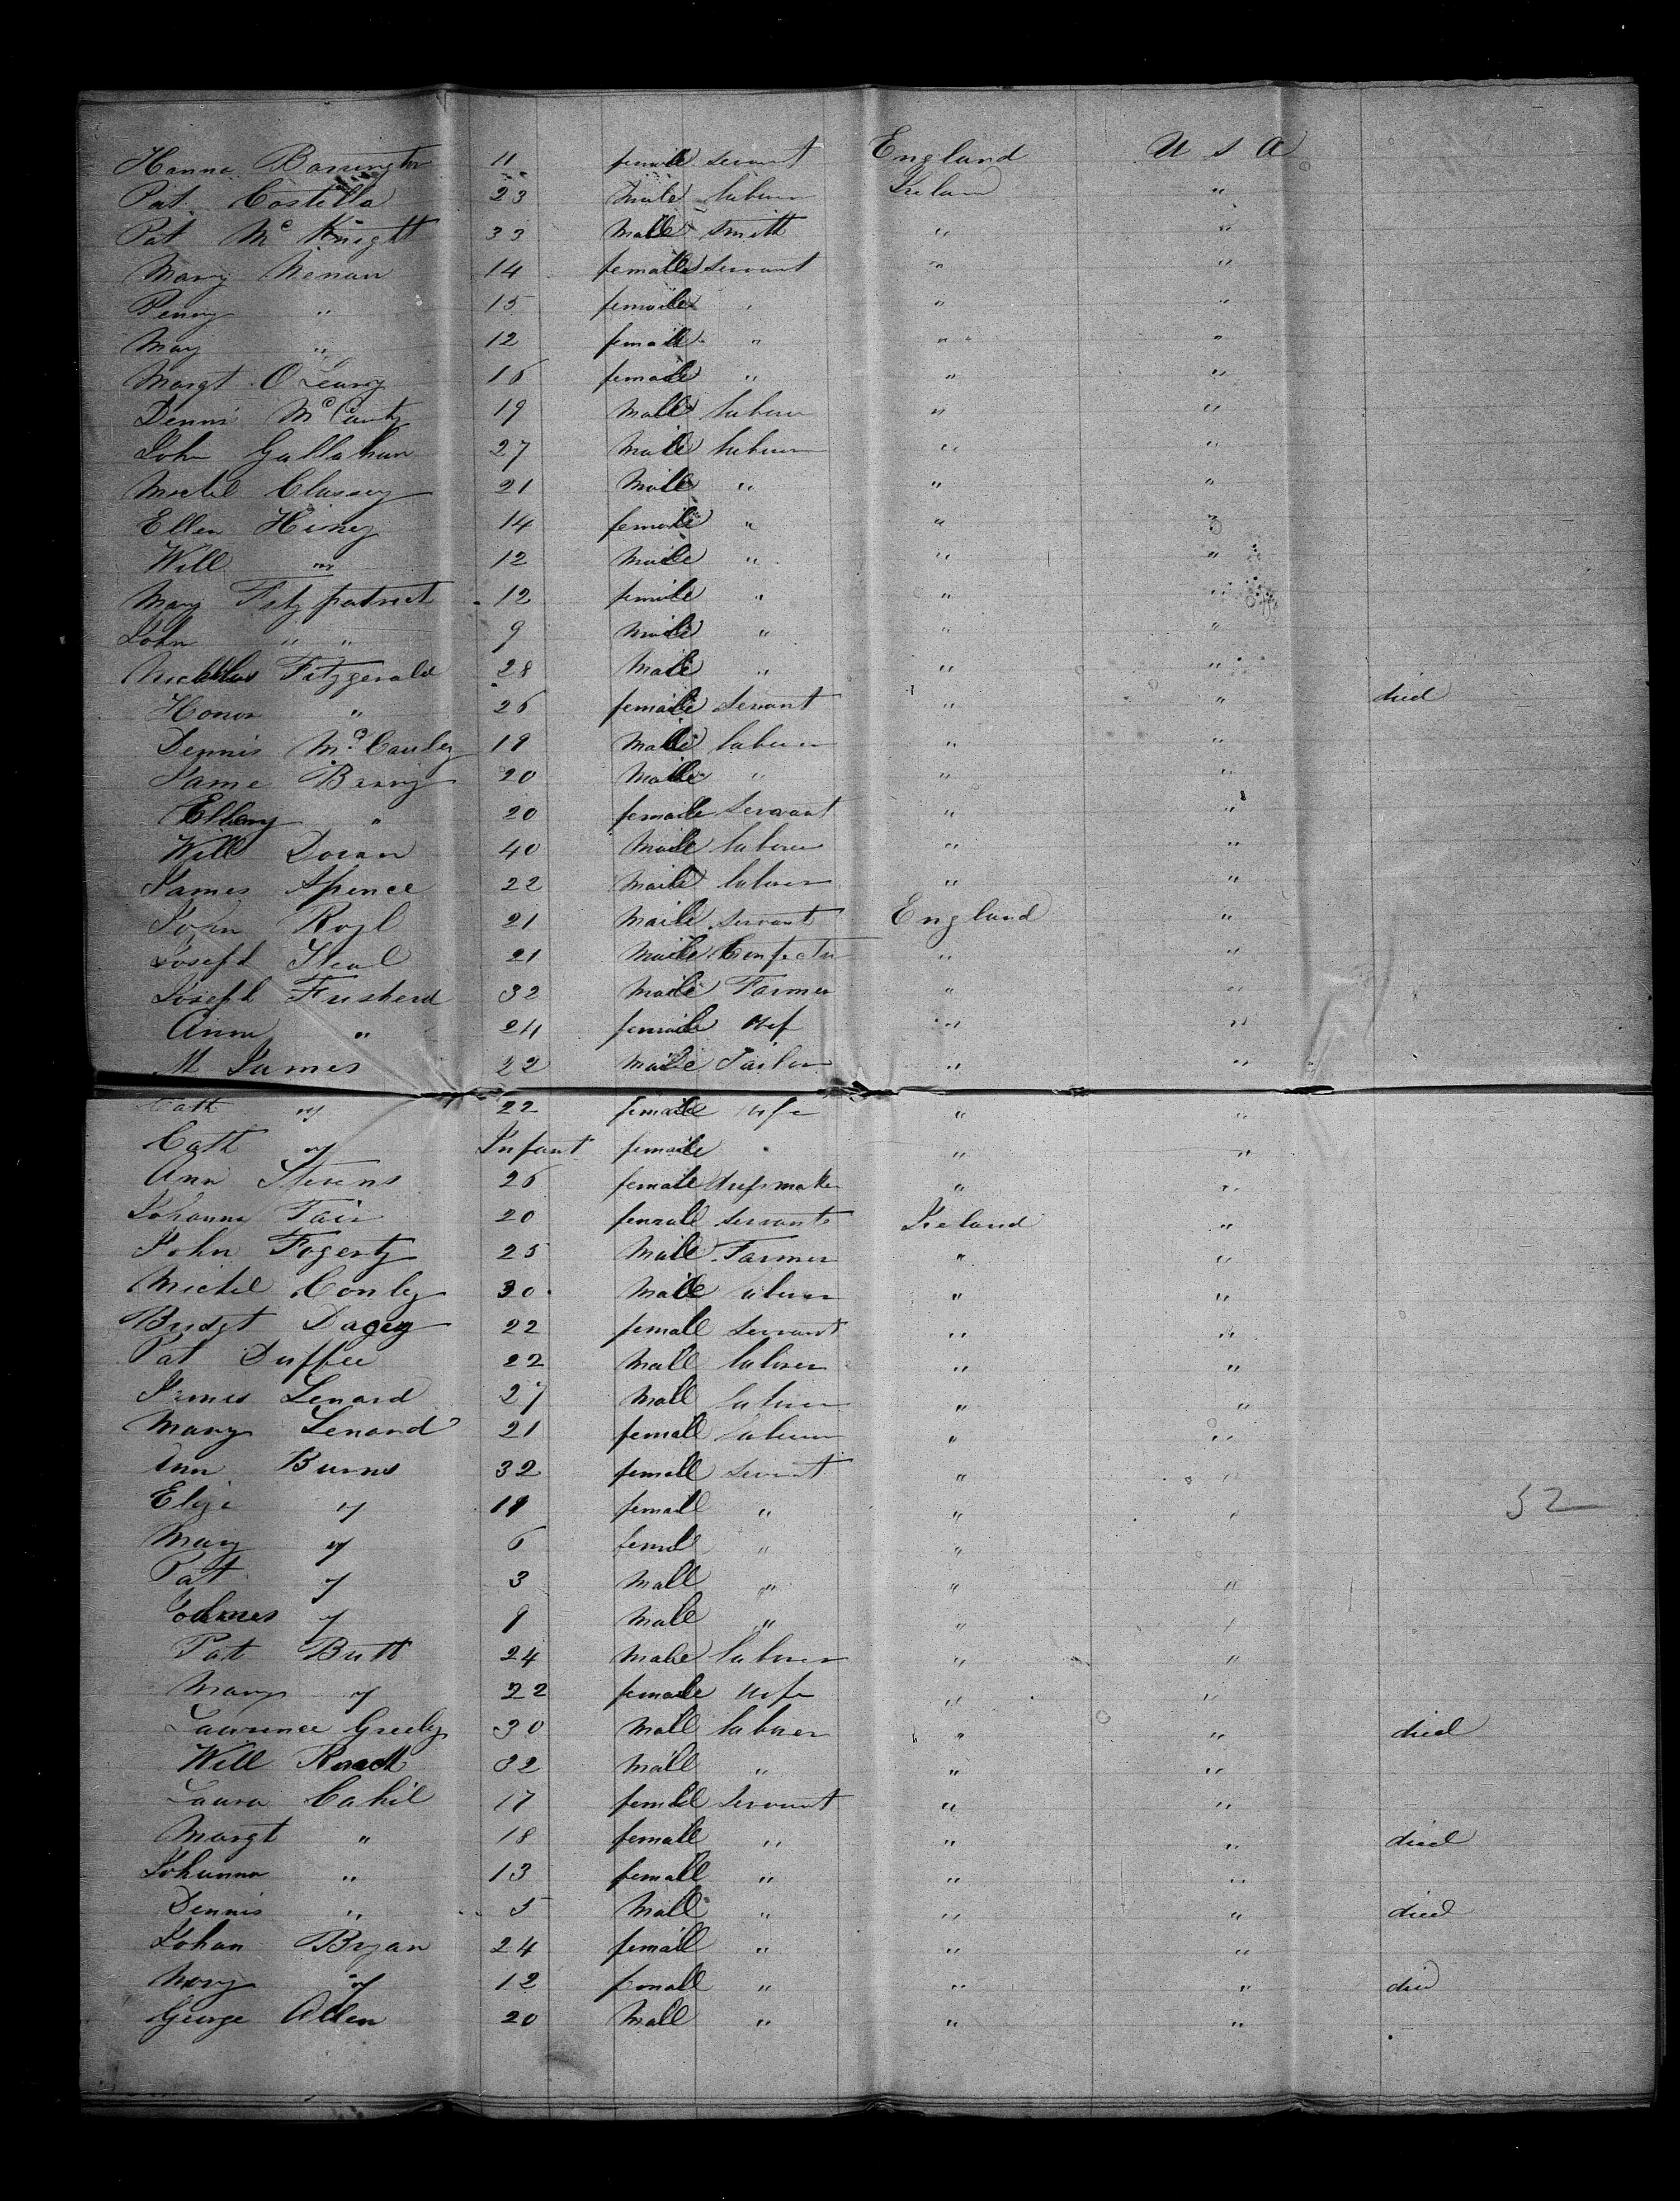 Hanna Barrington 11 female servant England U S A
Pat Costella 23 Male laburer Irelan "
Pat Mc Knight 33 Male Smith " "
Mary Nenan 14 female servant " "
Penny " 15 female " " "
May " 12 female " " "
Margt O Leary 16 female " " "
Dennis Mc Canty 19 Male laburer " "
John Gallahan 27 Male laburer " "
Michel Classey 21 Male " " "
Ellen Hiney 14 female " " "
Will " 12 Male " " "
Mary Fitzpatrict 12 female " " "
John " " 9 Male " " "
Nicholas Fitzgerald 28 Male " " "
Honor " 26 female Servant " " died
Dennis Mc Cauley 19 Male laburer " "
Jame Berry 20 Male " " "
Elleny " 20 female Servant " "
Will Doran 40 Male laburer " "
James Spence 22 Male laburer " "
John Rogl 21 Maile Servant England "
Joseph Steal 21 Maile " "
Joseph Frusherd 32 Maile Farmer " "
Anna " 24 female " "
M James 22 Male Tailor " "
Cath " 22 female wife " "
Cath " Infant female " "
Ann Stevens 26 female " "
Johanna Fair 20 female servant Ireland "
John Fogerty 25 Male Farmer " "
Michel Conley 30 Male laburer " "
Bridgt Dacey 22 female Servant " "
Pat Duffee 22 Male laburer " "
James Lenard 27 Male laburer " "
Mary Lenard 21 female laburer " "
Ann Burns 32 female servant " "
Eliza " 19 female " " "
52
Mary " 6 femal " " "
Pat " 3 Male " " "
" 9 Male " " "
Pat Butt 24 Male laburer " "
Mary " 22 female wife " "
Lawrence Greely 30 Male laburer " " died
Will 32 Male " " "
Laura Cahil 17 female Servant " "
Margt " 18 female " " " died
Johanna " 13 female " " "
Dennis " 5 Male " " " died
Johan Bryan 24 female " " "
Mary " 12 female " " " died
George Allen 20 Male " " "